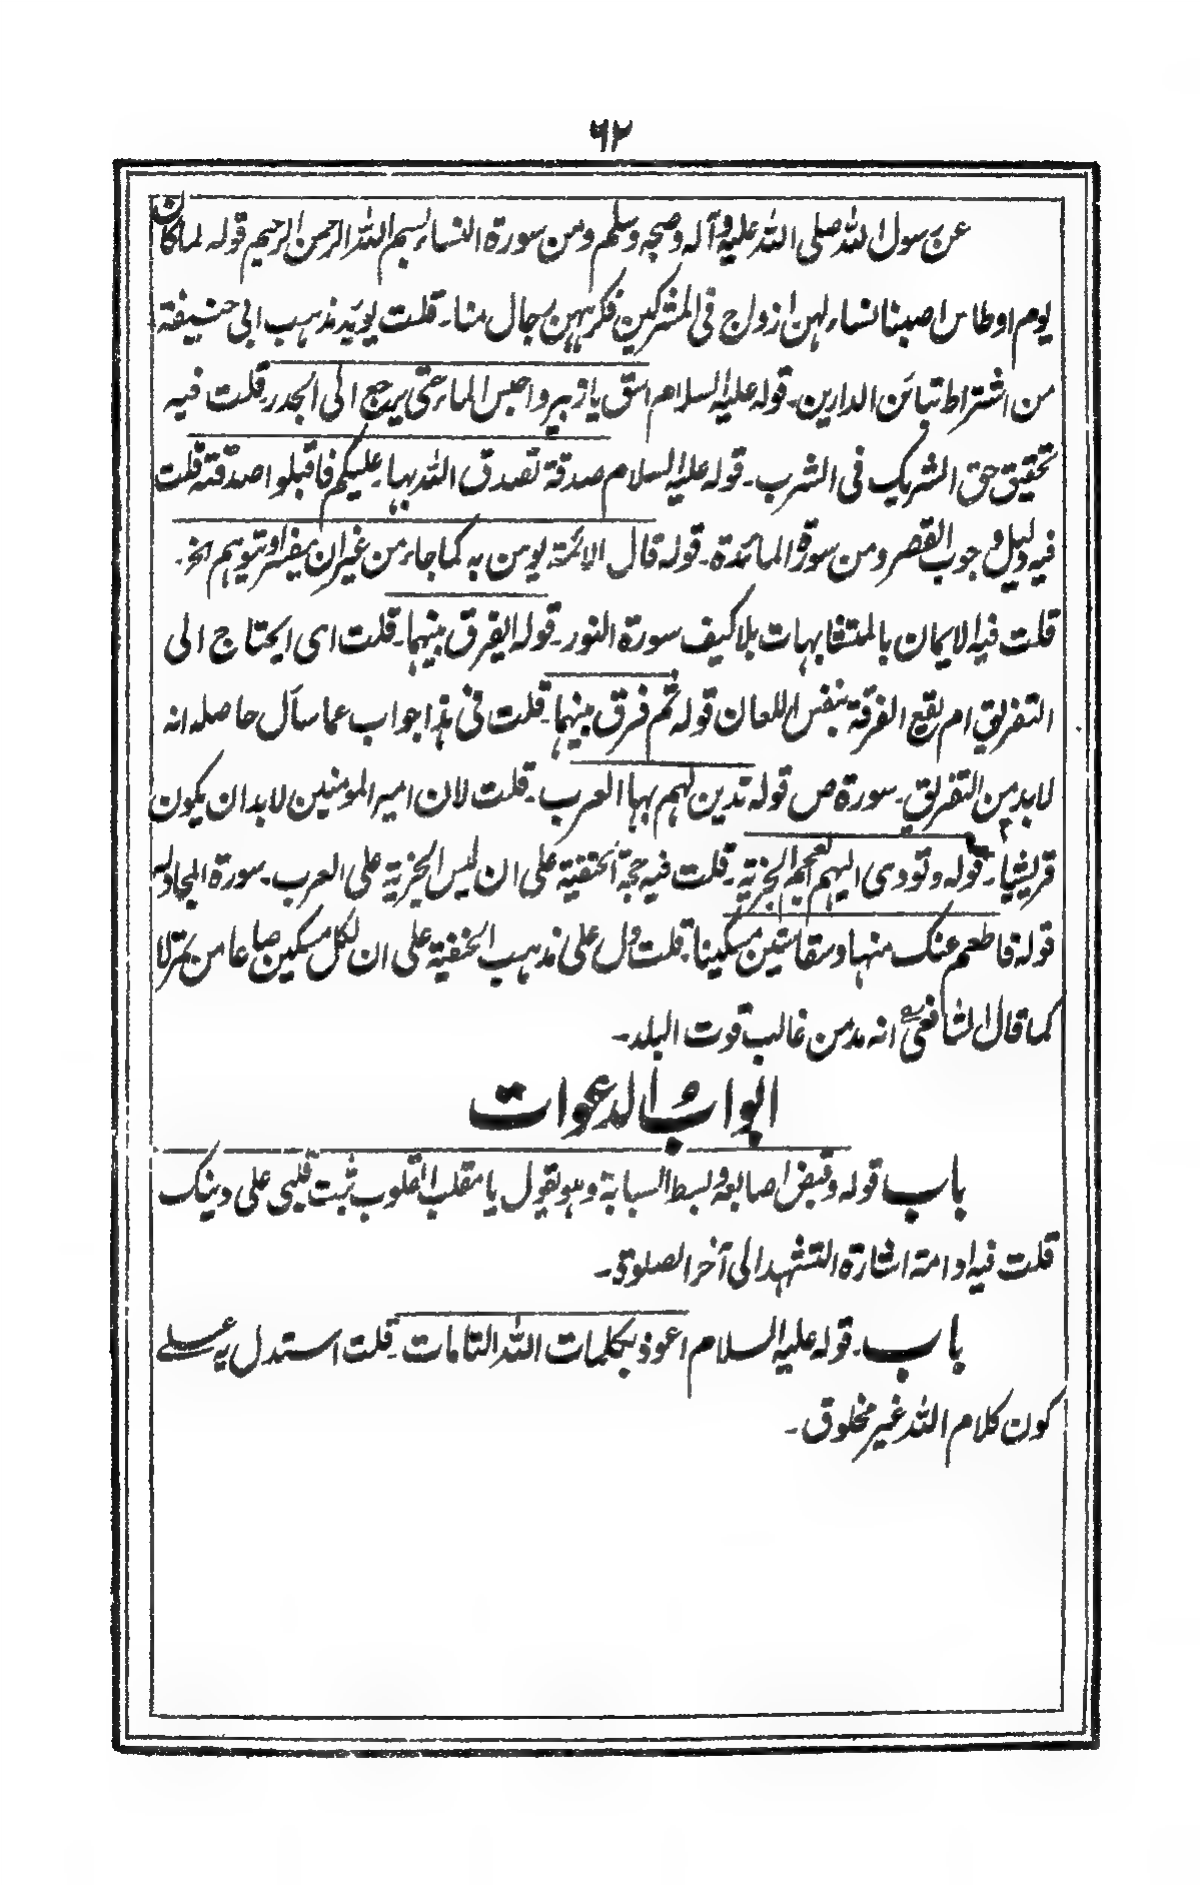 ٦٢
عن رسول الله صلى الله عليه وآله وصحبه وسلم ومن سورة النساء بسم الله الرحمن الرحيم قوله لما كان
يوم اوطاس اصبنا نساء لهن ازواج فى المشركين فكرههن رجال منا۔ قلت يويد مذهب ابى حنيفة
من اشتراط تبائن الدارين۔ قوله عليه السلام اسق يا زبير واحبس الماء حتى يرجع الى الجدر قلت فيه
تحقيق حق الشريك فى الشرب۔ قوله عليه السلام صدقة تصدق الله بها عليكم فاقبلوا صدقته قلت
فيه دليل وجوب القصر ومن سورة المائدة۔ قوله قال الائمة يومن به كما جاء من غير ان يفسر او يتوهم الخ۔
قلت فيه الايمان بالمتشابهات بلا كيف سورة النور۔ قوله ايفرق بينهما۔ قلت اى ايحتاج الى
التفريق ام يقع الفرقة بنفس اللعان قوله ثم فرق بينهما۔ قلت فى هذا جواب عما سأل حاصله انه
لا بد من التفريق۔ سورة ص قوله تدين لهم بها العرب۔ قلت لان امير المومنين لا بد ان يكون
قريشيا۔ قوله وتودى اليهم العجم الجزية۔ قلت فيه حجة الحنفية على ان ليس الجزية على العرب۔ سورة المجادلة
قوله فاطعم عنك منها وسقا ستين مسكينا۔ قلت دل على مذهب الحنفية على ان لكل مسكين صاعا من تمر لا
كما قال الشافعىؒ انه مد من غالب قوت البلد۔
ابواب الدعوات
باب قوله وقبض اصابعه وبسط السبابة وهو يقول يا مقلب القلوب ثبت قلبى على دينك
قلت فيه ادامة اشارة التشهد الى آخر الصلوة۔
باب۔ قوله عليه السلام اعوذ بكلمات الله التامات۔ قلت استدل به على
كون كلام الله غير مخلوق۔